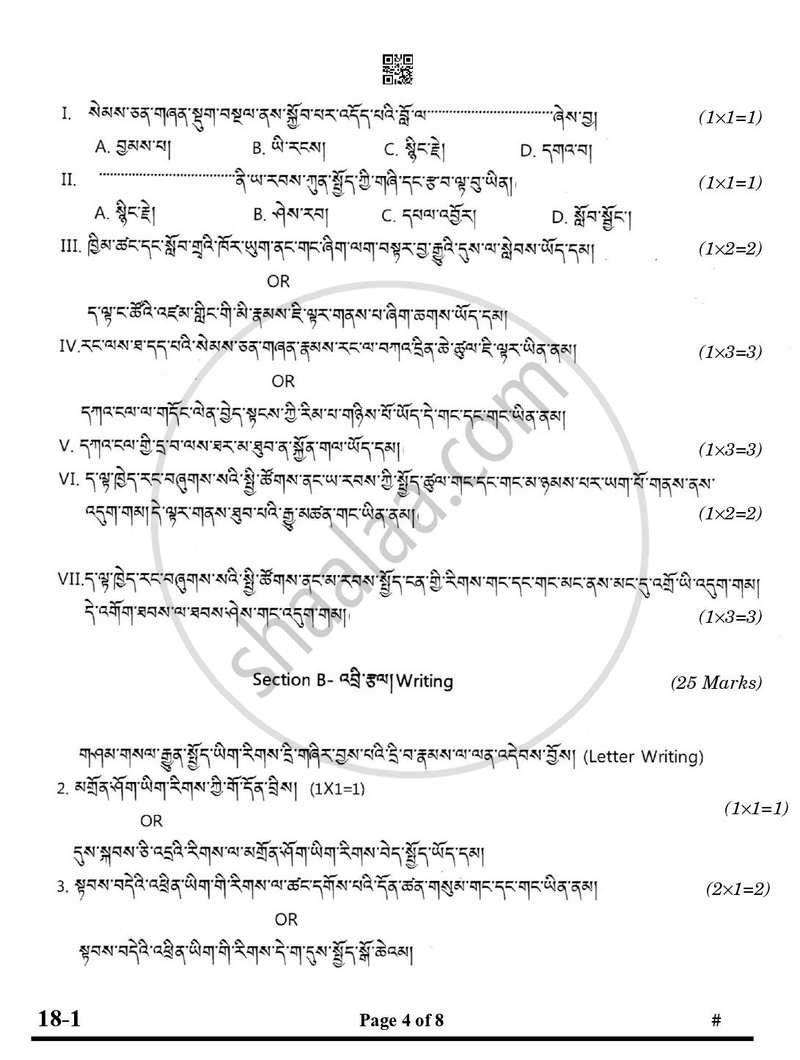 I. སེམས་ཅན་གཞན་སྡུག་བསྔལ་ནས་སྐྱོབ་པར་འདོད་པའི་བློ་ལ་..............................ཞེས་བྱ། (1×1=1)
A. བྱམས་པ། B. ཡི་རངས། C. སྙིང་རྗེ། D. དགའ་བ།
II. ................................ནི་ཡ་རབས་ཀུན་སྤྱོད་ཀྱི་གཞི་དང་རྩ་བ་ལྟ་བུ་ཡིན། (1×1=1)
A. སྙིང་རྗེ། B. ཤེས་རབ། C. དཔལ་འབྱོར། D. སློབ་སྦྱོང་།
III. ཁྱིམ་ཚང་དང་སློབ་གྲྭའི་ཁོར་ཡུག་ནང་གང་ཞིག་ལག་བསྟར་བྱ་རྒྱུའི་དུས་ལ་སླེབས་ཡོད་དམ། (1×2=2)
OR
ད་ལྟ་ང་ཚོའི་འཛམ་གླིང་གི་མི་རྣམས་ཇི་ལྟར་གནས་པ་ཞིག་ཆགས་ཡོད་དམ།
IV.རང་ལས་ཐ་དད་པའི་སེམས་ཅན་གཞན་རྣམས་རང་ལ་བཀའ་དྲིན་ཆེ་ཚུལ་ཇི་ལྟར་ཡིན་ནམ། (1×3=3)
OR
དཀའ་ངལ་ལ་གདོང་ལེན་བྱེད་སྟངས་ཀྱི་རིམ་པ་གཉིས་པོ་ཡོད་དེ་གང་དང་གང་ཡིན་ནམ།
V. དཀའ་ངལ་གྱི་དྲ་བ་ལས་ཐར་མ་ཐུབ་ན་སྐྱོན་གལ་ཡོད་དམ། (1×3=3)
VI. ད་ལྟ་ཁྱེད་རང་བཞུགས་སའི་སྤྱི་ཚོགས་ནང་ཡ་རབས་ཀྱི་སྤྱོད་ཚུལ་གང་དང་གང་མ་ཉམས་པར་ཡག་པོ་གནས་ནས་
འདུག་གམ། དེ་ལྟར་གནས་ཐུབ་པའི་རྒྱུ་མཚན་གང་ཡིན་ནམ། (1×2=2)
VII.ད་ལྟ་ཁྱེད་རང་བཞུགས་སའི་སྤྱི་ཚོགས་ནང་མ་རབས་སྤྱོད་ངན་གྱི་རིགས་གང་དང་གང་མང་ནས་མང་དུ་འགྲོ་ཡི་འདུག་གམ།
དེ་འགོག་ཐབས་ལ་ཐབས་ཤེས་གང་འདུག་གམ། (1×3=3)
Section B- འབྲི་རྩལ། Writing (25 Marks)
གཤམ་གསལ་རྒྱུན་སྤྱོད་ཡིག་རིགས་དྲི་གཞིར་བྱས་པའི་དྲི་བ་རྣམས་ལ་ལན་འདེབས་བྱོས། (Letter Writing)
2. མགྲོན་ཤོག་ཡིག་རིགས་ཀྱི་གོ་དོན་བྲིས། (1X1=1)
(1×1=1)
OR
དུས་སྐབས་ཅི་འདྲའི་རིགས་ལ་མགྲོན་ཤོག་ཡིག་རིགས་བེད་སྤྱོད་ཡོད་དམ།
3. སྟབས་བདེའི་འཕྲིན་ཡིག་གི་རིགས་ལ་ཚང་དགོས་པའི་དོན་ཚན་གསུམ་གང་དང་གང་ཡིན་ནམ། (2×1=2)
OR
སྟབས་བདེའི་འཕྲིན་ཡིག་གི་རིགས་དེ་ག་དུས་སྤྱོད་སྒོ་ཆེའམ།
shaalaa.com
18-1 Page 4 of 8 #